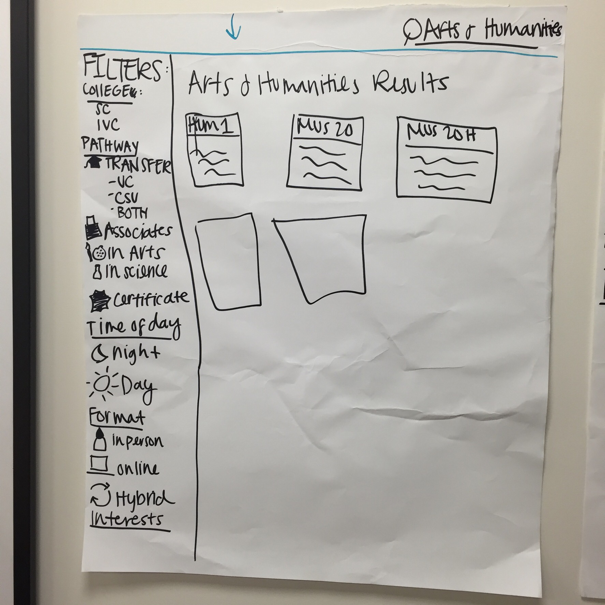 Arts & Humanities
FILTERS:
COLLEGE:
SC
IVC
PATHWAY
TRANSFER
-UC
-CSU
-BOTH
Associates
in Arts
In science
Certificate
Time of day
night
Day
Format
In person
online
Hybrid
Interests
Arts & Humanities Results
HUM 1
MUS 20
MUS 20H